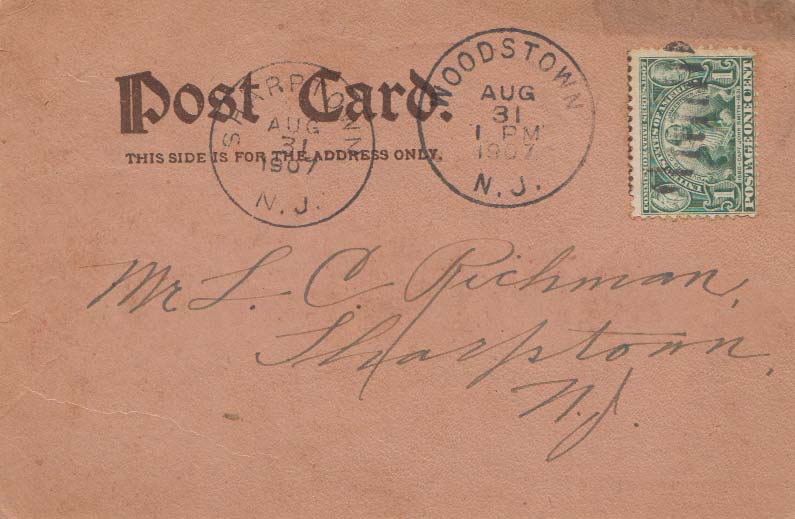 Post Card.
THIS SIDE IS FOR THE ADDRESS ONLY.
SHARPTOWN
AUG
31
1907
N.J.
WOODSTOWN
AUG
31
1 PM
1907
N.J.
1
1
POSTAGE·ONE·CENT
Mr L. C. Richman,
Sharptown,
N.J.